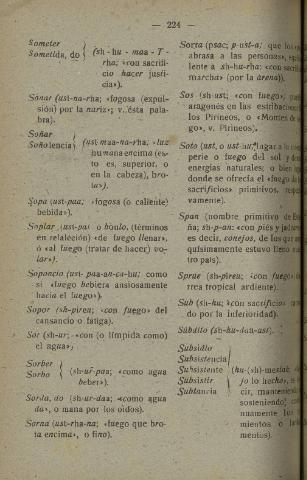 — 224 —
Someter
Sometida, do
(sh-hu-maa-T-
rha; «con sacrifi-
cio hacer justi-
cia»).
Sonar (ust-na-rha; «fogosa (expul-
sión) por la nariz»; v. ésta pala-
bra).
Soñar
Soñolencia
(ust-maa-na-rha; «luz
humana encima (es-
to es, superior, o
en la cabeza), bro-
ta»).
Sopa (ust-paa; «fogosa (o caliente)
bebida»).
Soplar (ust-pai o boulo, (términos
en relalción) «de fuego llenar»,
o «al fuego (tratar de hacer) vo-
lar»).
Soponcio (ust-paa-an-ca-hu; como
si «fuego bebiera ansiosamente
hacia el fuego»).
Sopor (sh-pireu; «con fuego» del
cansancio o fatiga).
Sor (sh-ur; «con (o límpida como)
el agua»;
Sorber
Sorbo
(sh-ur-paa; «como agua
beber»).
Sorda, do (sh-ur-daa; «como agua
da», o mana por los oidos).
Sorna (ust-rha-na; «fuego que bro-
ta encima», o fino).
Sorta (psac; p-ust-a; que los
abrasa a las personas»,
lente a sh-hu-rha; «con sacrifi
marcha» (por la arena)).
Sos (sh-ust; «con fuego»,
aragonés en las estribacione
los Pirineos, o «Montes de
go», v. Pirineos).
Soto (ust, o ust-hu, lugar a lo
perie o fuego del sol y de
energías naturales; o bien
donde se ofrecia el «fuego de
sacrificios» primitivos, respe
vamente).
Span (nombre primitivo de Es
ña; sh-p-an: «con piés y
es decir, conejos, de los que an
quisimamente estuvo lleno
tro país).
Sprue (sh-pireu; «con fuego»
rrea tropical ardiente).
Sub (sh-hu; «con sacrificio»
do por la inferioridad).
Súbdito (sh-hu-daa-ust).
Subsidio
Subsistencia
Subsistente
Subsistir
Subtancia
(hu-(sh)-mestad;
jo lo hecho»,
cir, mantenié
sosteniendo
nuamente los
mientos o la
mentos).